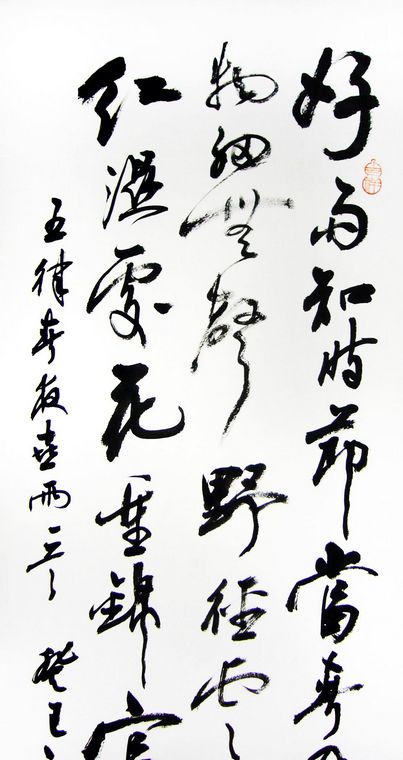 好雨知時節當春乃
物細無聲野徑雲
紅濕處花重錦官
五律春夜喜雨一首 癸巳